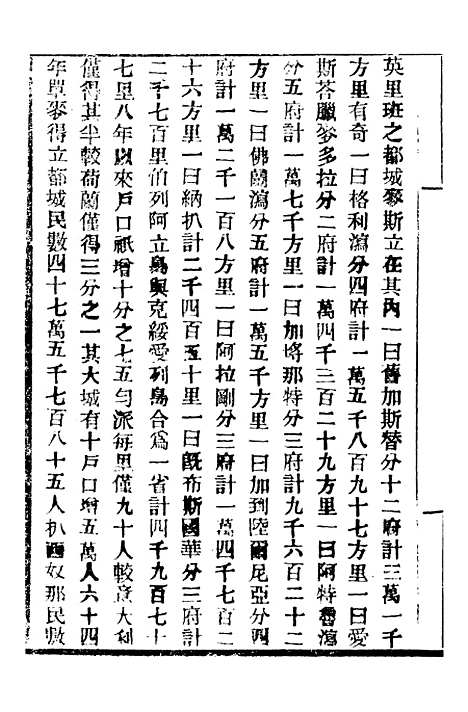 英里班之都城麥斯立在其內一曰舊加斯替分十二府計三萬一千
方里有奇一曰格利瀉分四府計一萬五千八百九十七方里一曰愛
斯荅臘麥多拉分二府計一萬四千三百二十九方里一曰阿特魯瀉
分五府計一萬七千方里一曰加嗒那特分三府計九千六百二十二
方里一曰佛蘭瀉分五府計一萬五千方里一曰加到陸爾尼亞分四
府計一萬二千一百八方里一曰阿拉剛分三府計一萬四千七百二
十六方里一曰納扒計二千四百五十里一曰旣布斯國華分三府計
二千七百里伯列阿立島與克綏愛列島合爲一省計四千九百七十
七里八年以來戶口祇增十分之七五勻派每里僅九十人較意大利
僅得其半較荷蘭僅得三分之一其大城有十戶口增五萬人六十四
年單麥得立都城民數四十七萬五千七百八十五人扒西奴那民數